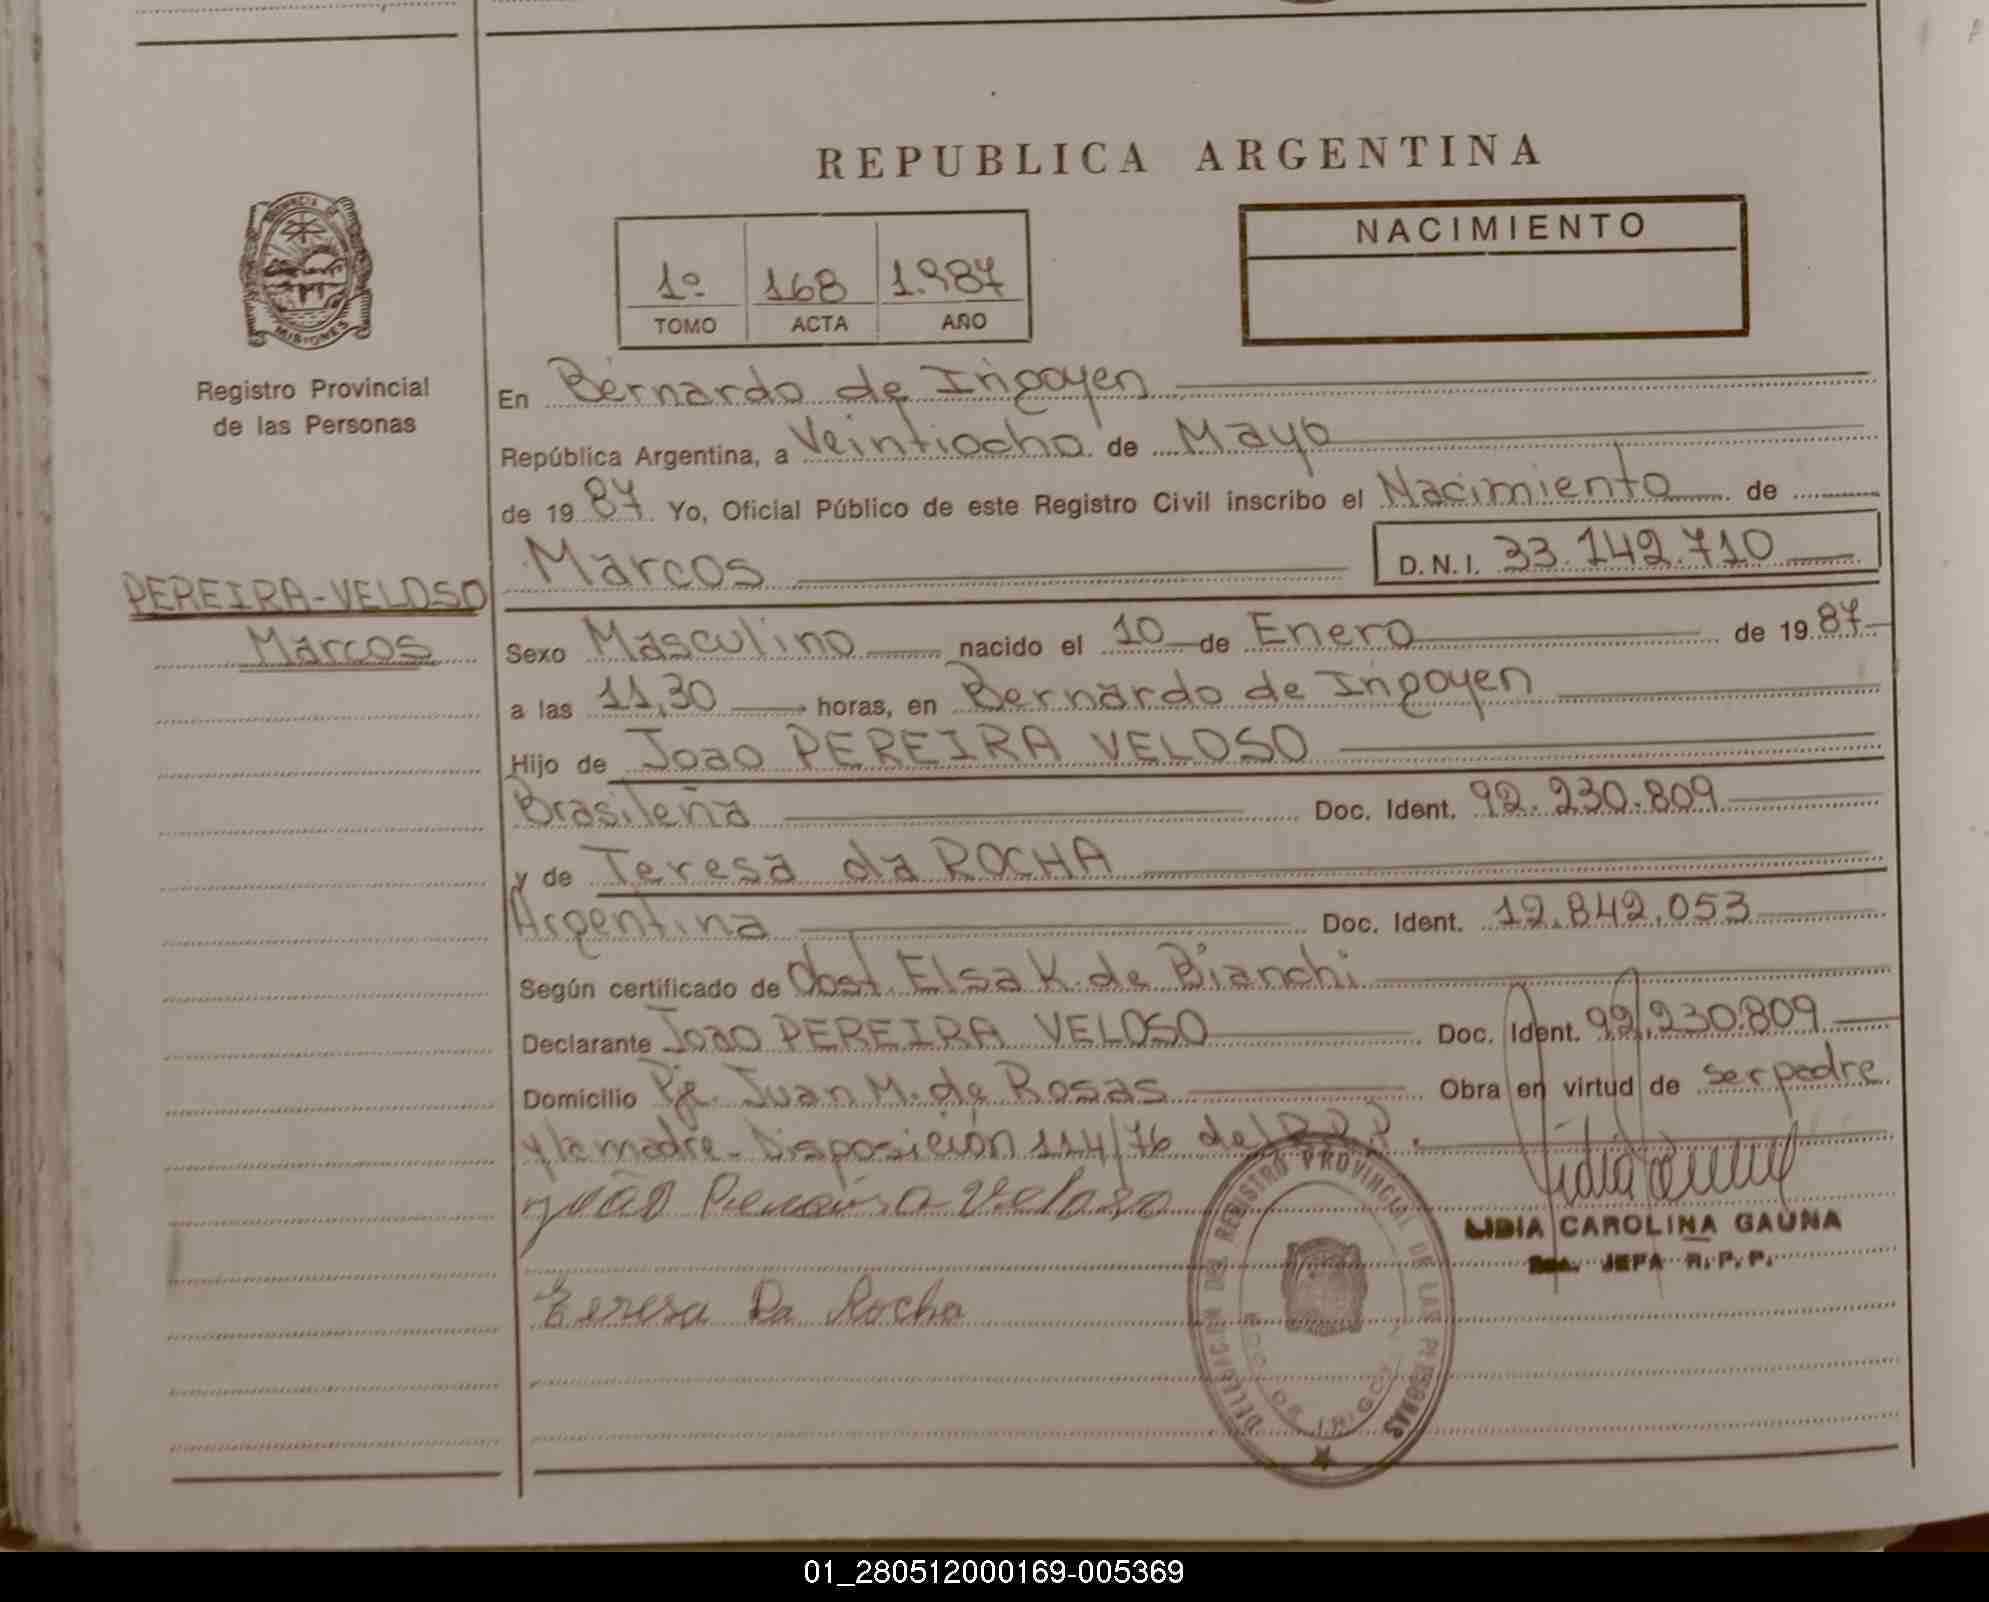 REPUBLICA ARGENTINA
NACIMIENTO
1º 168 1.987
TOMO ACTA AÑO
PROVINCIA DE
MISIONES
Registro Provincial
de las Personas
PEREIRA-VELOSO
Marcos
En Bernardo de Irigoyen
República Argentina, a Veintiocho de Mayo
de 1987 Yo, Oficial Público de este Registro Civil inscribo el Nacimiento de
Marcos D.N.I. 33.142.710
Sexo Masculino nacido el 10 de Enero de 1987
a las 11,30 horas, en Bernardo de Irigoyen
Hijo de Joao PEREIRA VELOSO
Brasileña Doc. Ident. 92.230.809
y de Teresa da ROCHA
Argentina Doc. Ident. 12.842.053
Según certificado de Obst. Elsa K. de Bianchi
Declarante Joao PEREIRA VELOSO Doc. Ident. 92.230.809
Domicilio Pje. Juan M. de Rosas Obra en virtud de ser padre
y la madre - Disposición 114/76 del R.P.P.
João Pereira Veloso
LIDIA CAROLINA GAUNA
JEFA R.P.P.
Teresa Da Rocha
DELEGACION DEL REGISTRO PROVINCIAL DE LAS PERSONAS
01_280512000169-005369